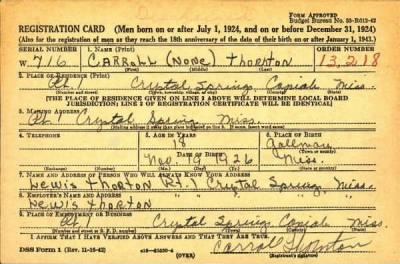 FORM APPROVED
Budget Bureau No. 33-R012-42
REGISTRATION CARD (Men born on or after July 1, 1924, and on or before December 31, 1924)
(Also for the registration of men as they reach the 18th anniversary of the date of their birth on or after January 1, 1943.)
SERIAL NUMBER 1. NAME (Print) ORDER NUMBER
W. 716 CARROLL (None) Thornton 13,218
(First) (Middle) (Last)
2. PLACE OF RESIDENCE (Print)
Rt. 1 Crystal Springs Copiah Miss.
(THE PLACE OF RESIDENCE GIVEN ON LINE 2 ABOVE WILL DETERMINE LOCAL BOARD
JURISDICTION; LINE 2 OF REGISTRATION CERTIFICATE WILL BE IDENTICAL)
3. MAILING ADDRESS
Rt. 1 Crystal Spring Miss.
4. TELEPHONE 5. AGE IN YEARS 6. PLACE OF BIRTH
18 Gallman
DATE OF BIRTH (Town or county)
Nov 19 1926 Miss.
(Exchange) (Number) (Mo.) (Day) (Yr.) (State or country)
7. NAME AND ADDRESS OF PERSON WHO WILL ALWAYS KNOW YOUR ADDRESS
Lewis Thorton (Rt. 1) Crystal Springs, Miss.
8. EMPLOYER'S NAME AND ADDRESS
Lewis Thorton
9. PLACE OF EMPLOYMENT OR BUSINESS
Rt 1 Crystal Springs Copiah Miss.
I AFFIRM THAT I HAVE VERIFIED ABOVE ANSWERS AND THAT THEY ARE TRUE.
Carroll Thornton
DSS Form 1 (Rev. 11-16-42) (OVER) (Registrant's signature)